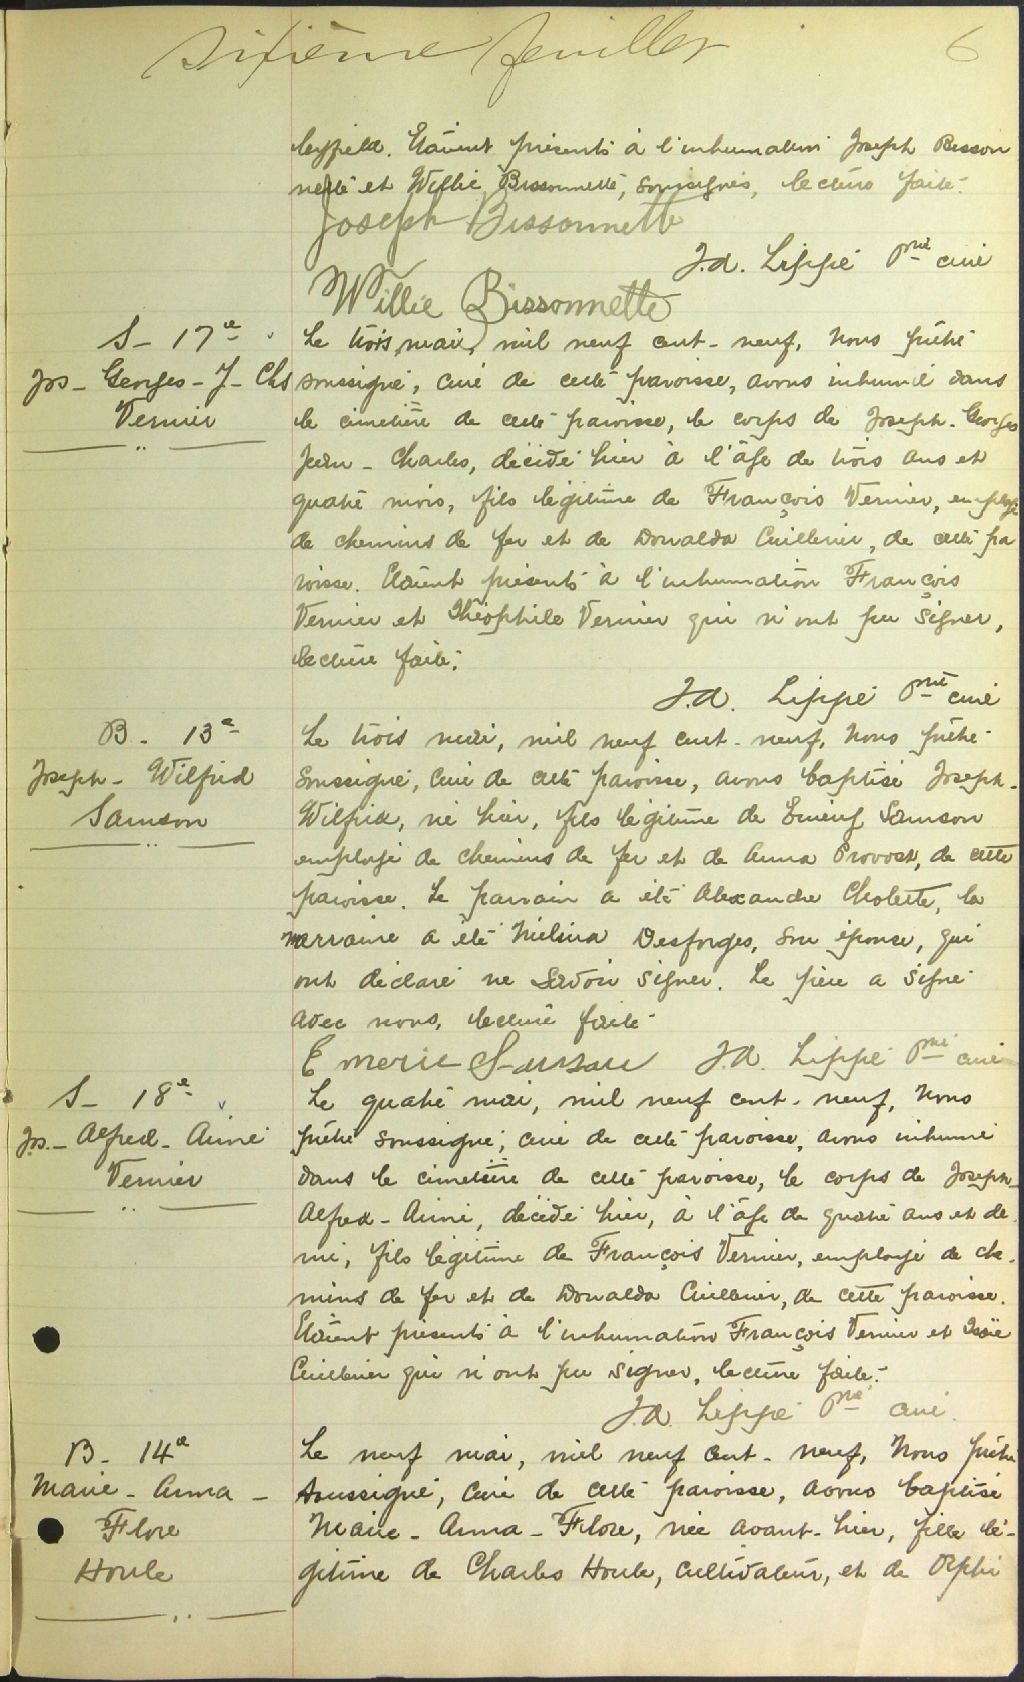 sixième feuillet 6
leyfield. Etaient présents à l'inhumation Joseph Bisson
nette et Willie Bissonnette, soussignés, lecture faite.
Joseph Bissonnette
J.A. Lippé Ptre curé
Willie Bissonnette
S- 17e
Jos- Georges- J- Chs
Vernier
Le trois mai, mil neuf cent-neuf, Nous prêtre
soussigné, curé de cette paroisse, avons inhumé dans
le cimetière de cette paroisse, le corps de Joseph-Georges
Jean-Charles, décédé hier à l'âge de trois ans et
quatre mois, fils légitime de François Vernier, employé
de chemins de fer et de Donalda Cuillerier, de cette pa
roisse. Etaient présents à l'inhumation François
Vernier et Théophile Vernier qui n'ont pu signer,
lecture faite.
J.A. Lippé Ptre curé
B- 13e
Joseph- Wilfrid
Samson
Le trois mai, mil neuf cent-neuf, Nous prêtre
soussigné, curé de cette paroisse, avons baptisé Joseph-
Wilfrid, né hier, fils légitime de Emery Samson
employé de chemins de fer et de Anna Provost, de cette
paroisse. Le parrain a été Alexandre Cholette, la
marraine a été Mélina Desforges, son épouse, qui
ont déclaré ne savoir signer. Le père a signé
avec nous, lecture faite.
Emerie Samson J.A. Lippé Ptre curé
S- 18e
Jos.- Alfred- Aimé
Vernier
Le quatre mai, mil neuf cent-neuf, Nous
prêtre soussigné, curé de cette paroisse, avons inhumé
dans le cimetière de cette paroisse, le corps de Joseph-
Alfred-Aimé, décédé hier, à l'âge de quatre ans et de
mi, fils légitime de François Vernier, employé de che-
mins de fer et de Donalda Cuillerier, de cette paroisse.
Etaient présents à l'inhumation François Vernier et Isaïe
Cuillerier qui n'ont pu signer, lecture faite.
J.A. Lippé Ptre curé.
B- 14e
Marie- Anna-
Flore
Houle
Le neuf mai, mil neuf cent-neuf, Nous prêtre
soussigné, curé de cette paroisse, avons baptisé
Marie-Anna-Flore, née avant-hier, fille lé-
gitime de Charles Houle, cultivateur, et de Orphi